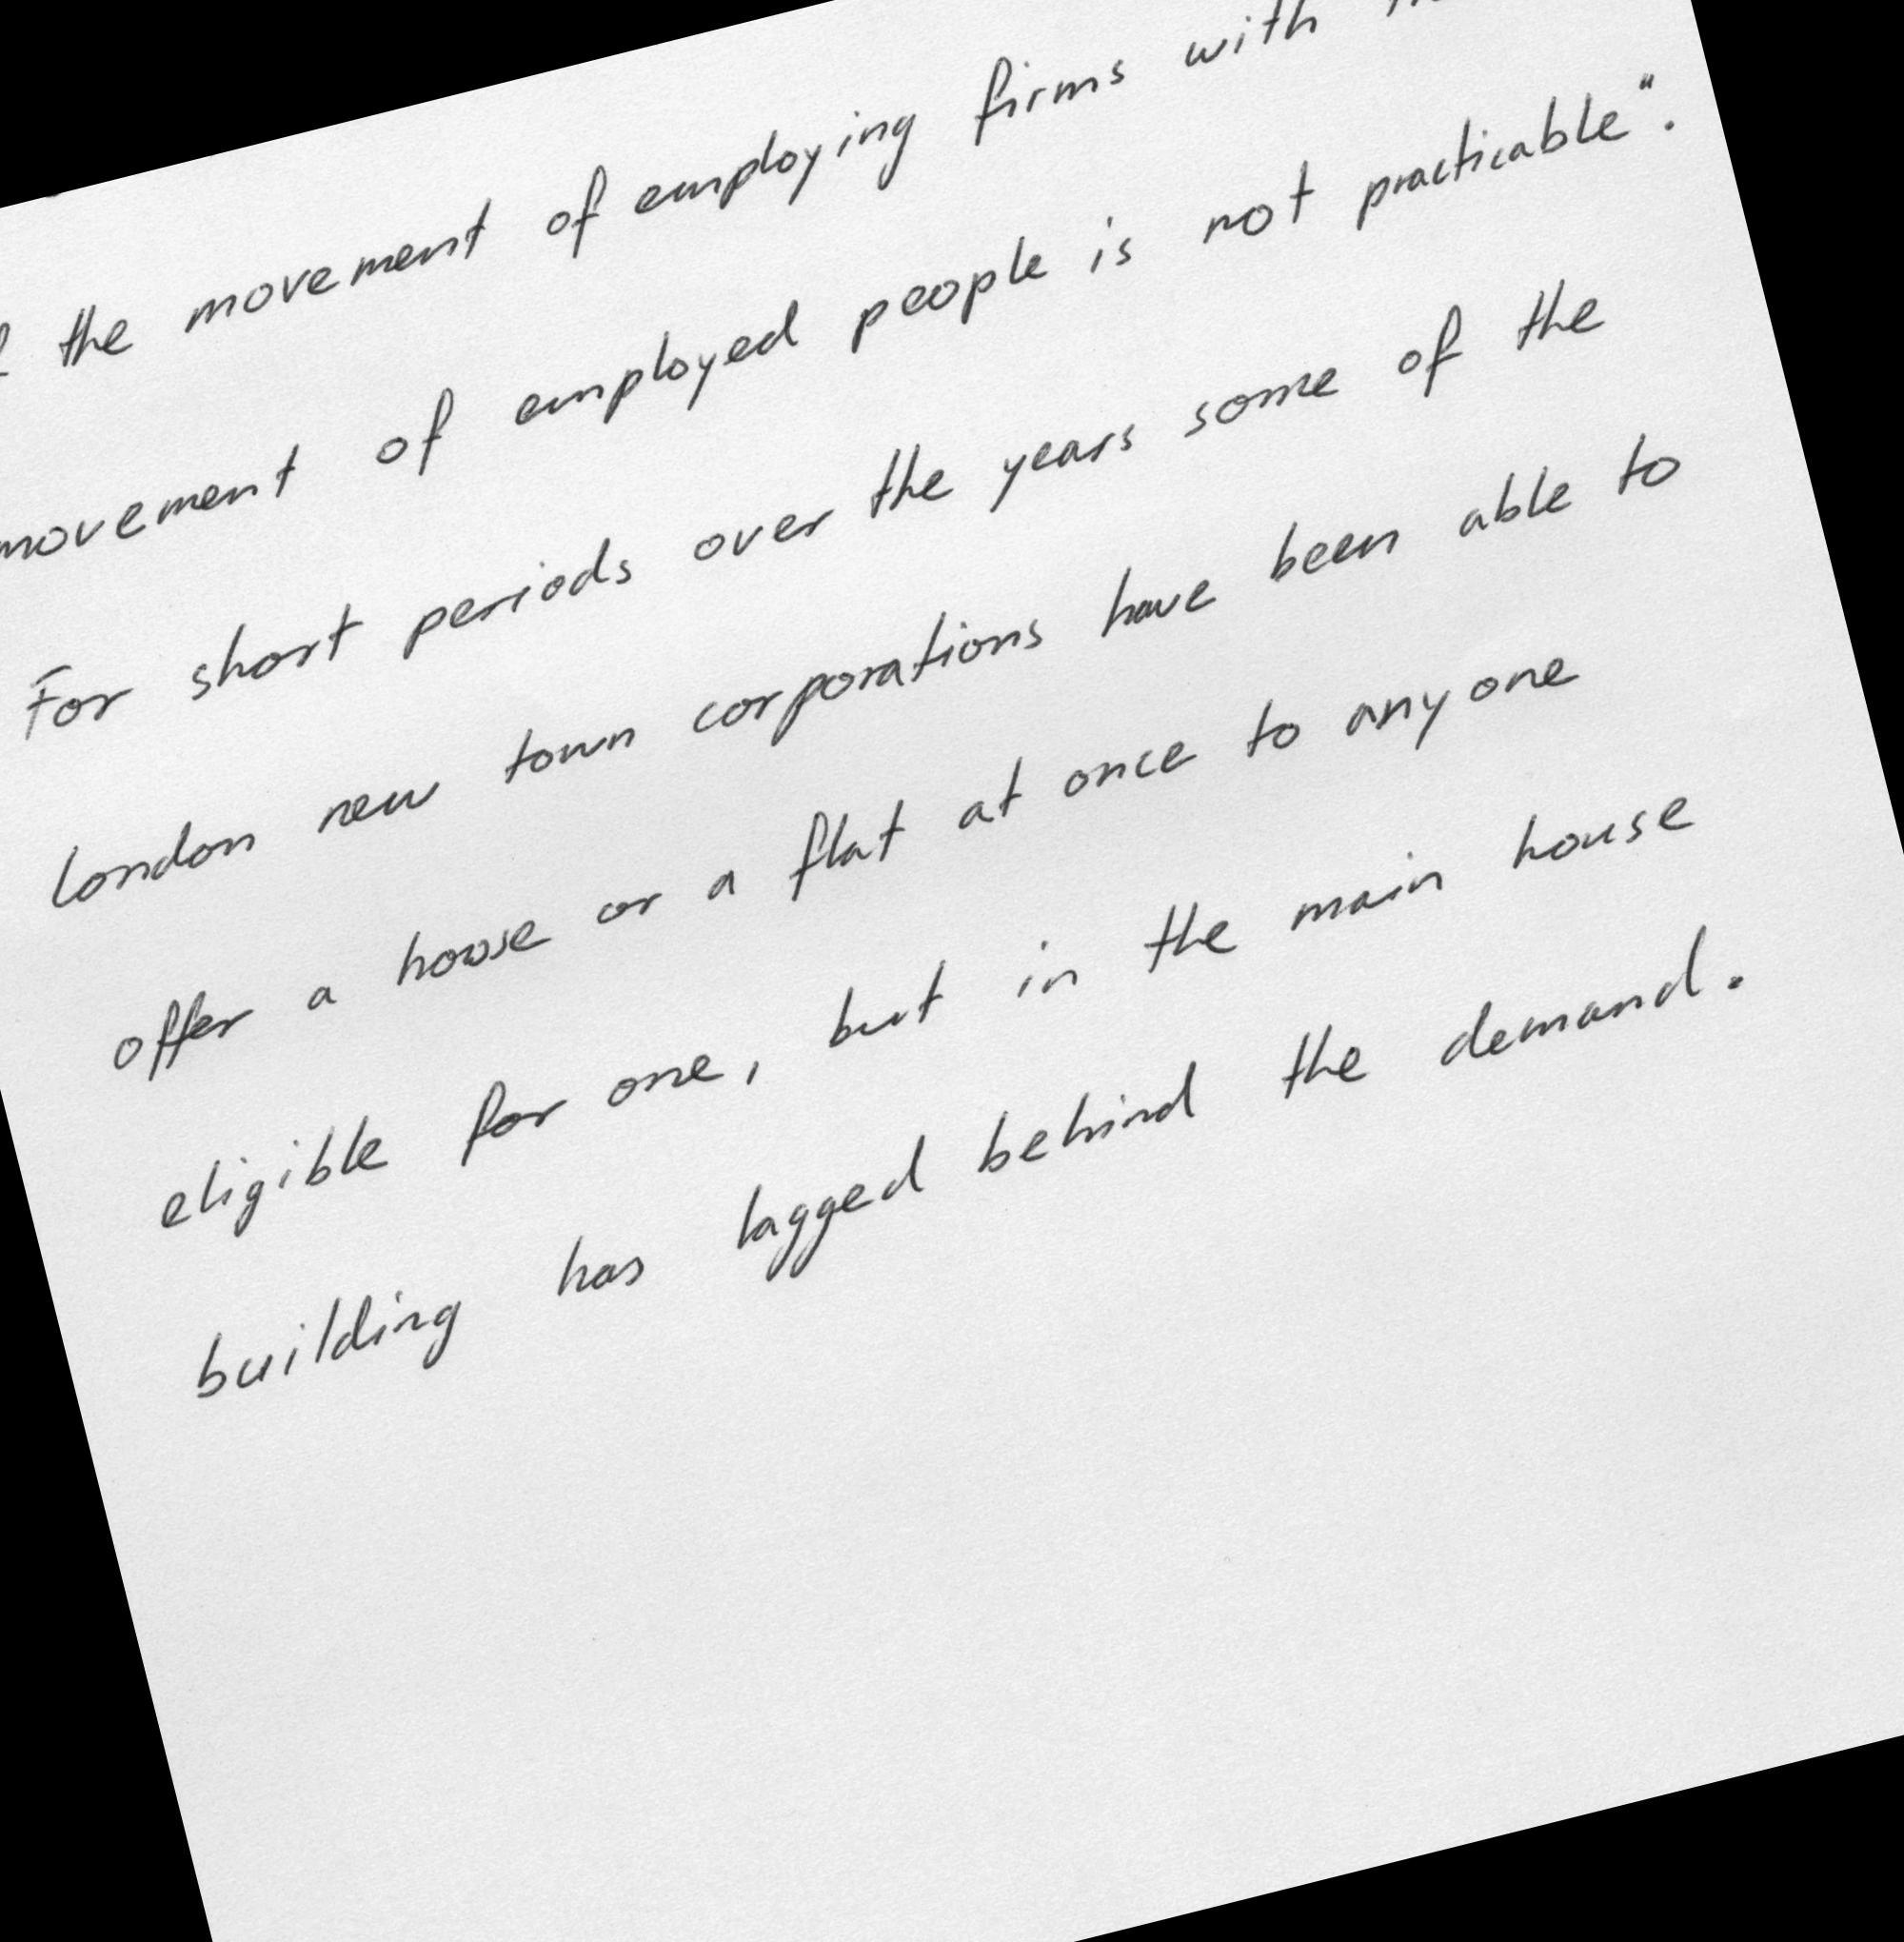 the movement of employing firms with
movement of employed people is not practicable".
For short periods over the years some of the
London new town corporations have been able to
offer a house or a flat at once to anyone
eligible for one, but in the main house
building has lagged behind the demand.